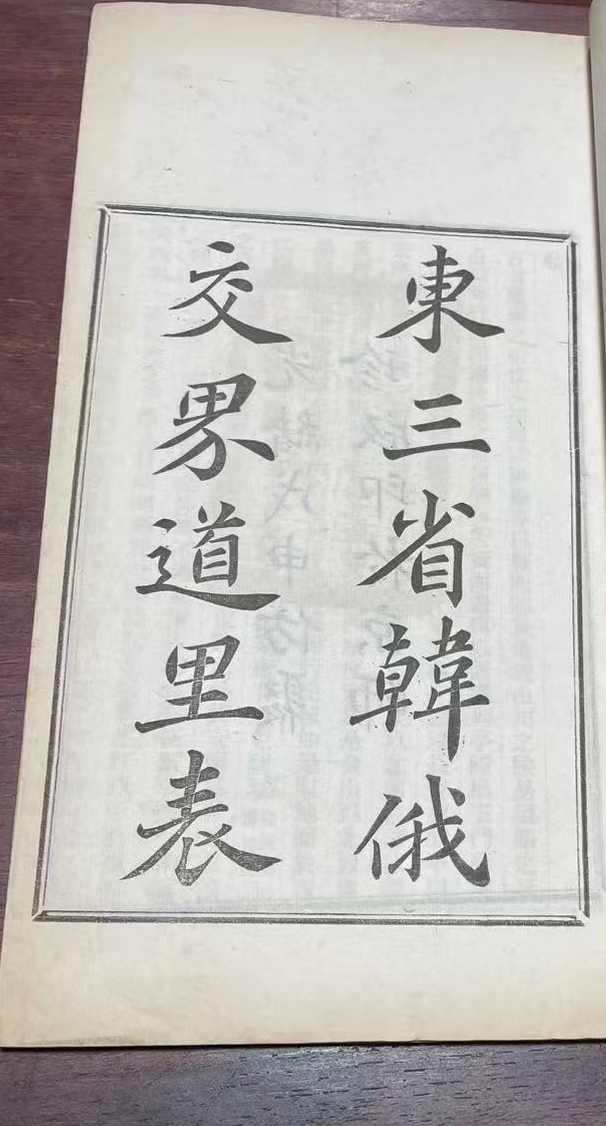 東三省韓俄
交界道里表